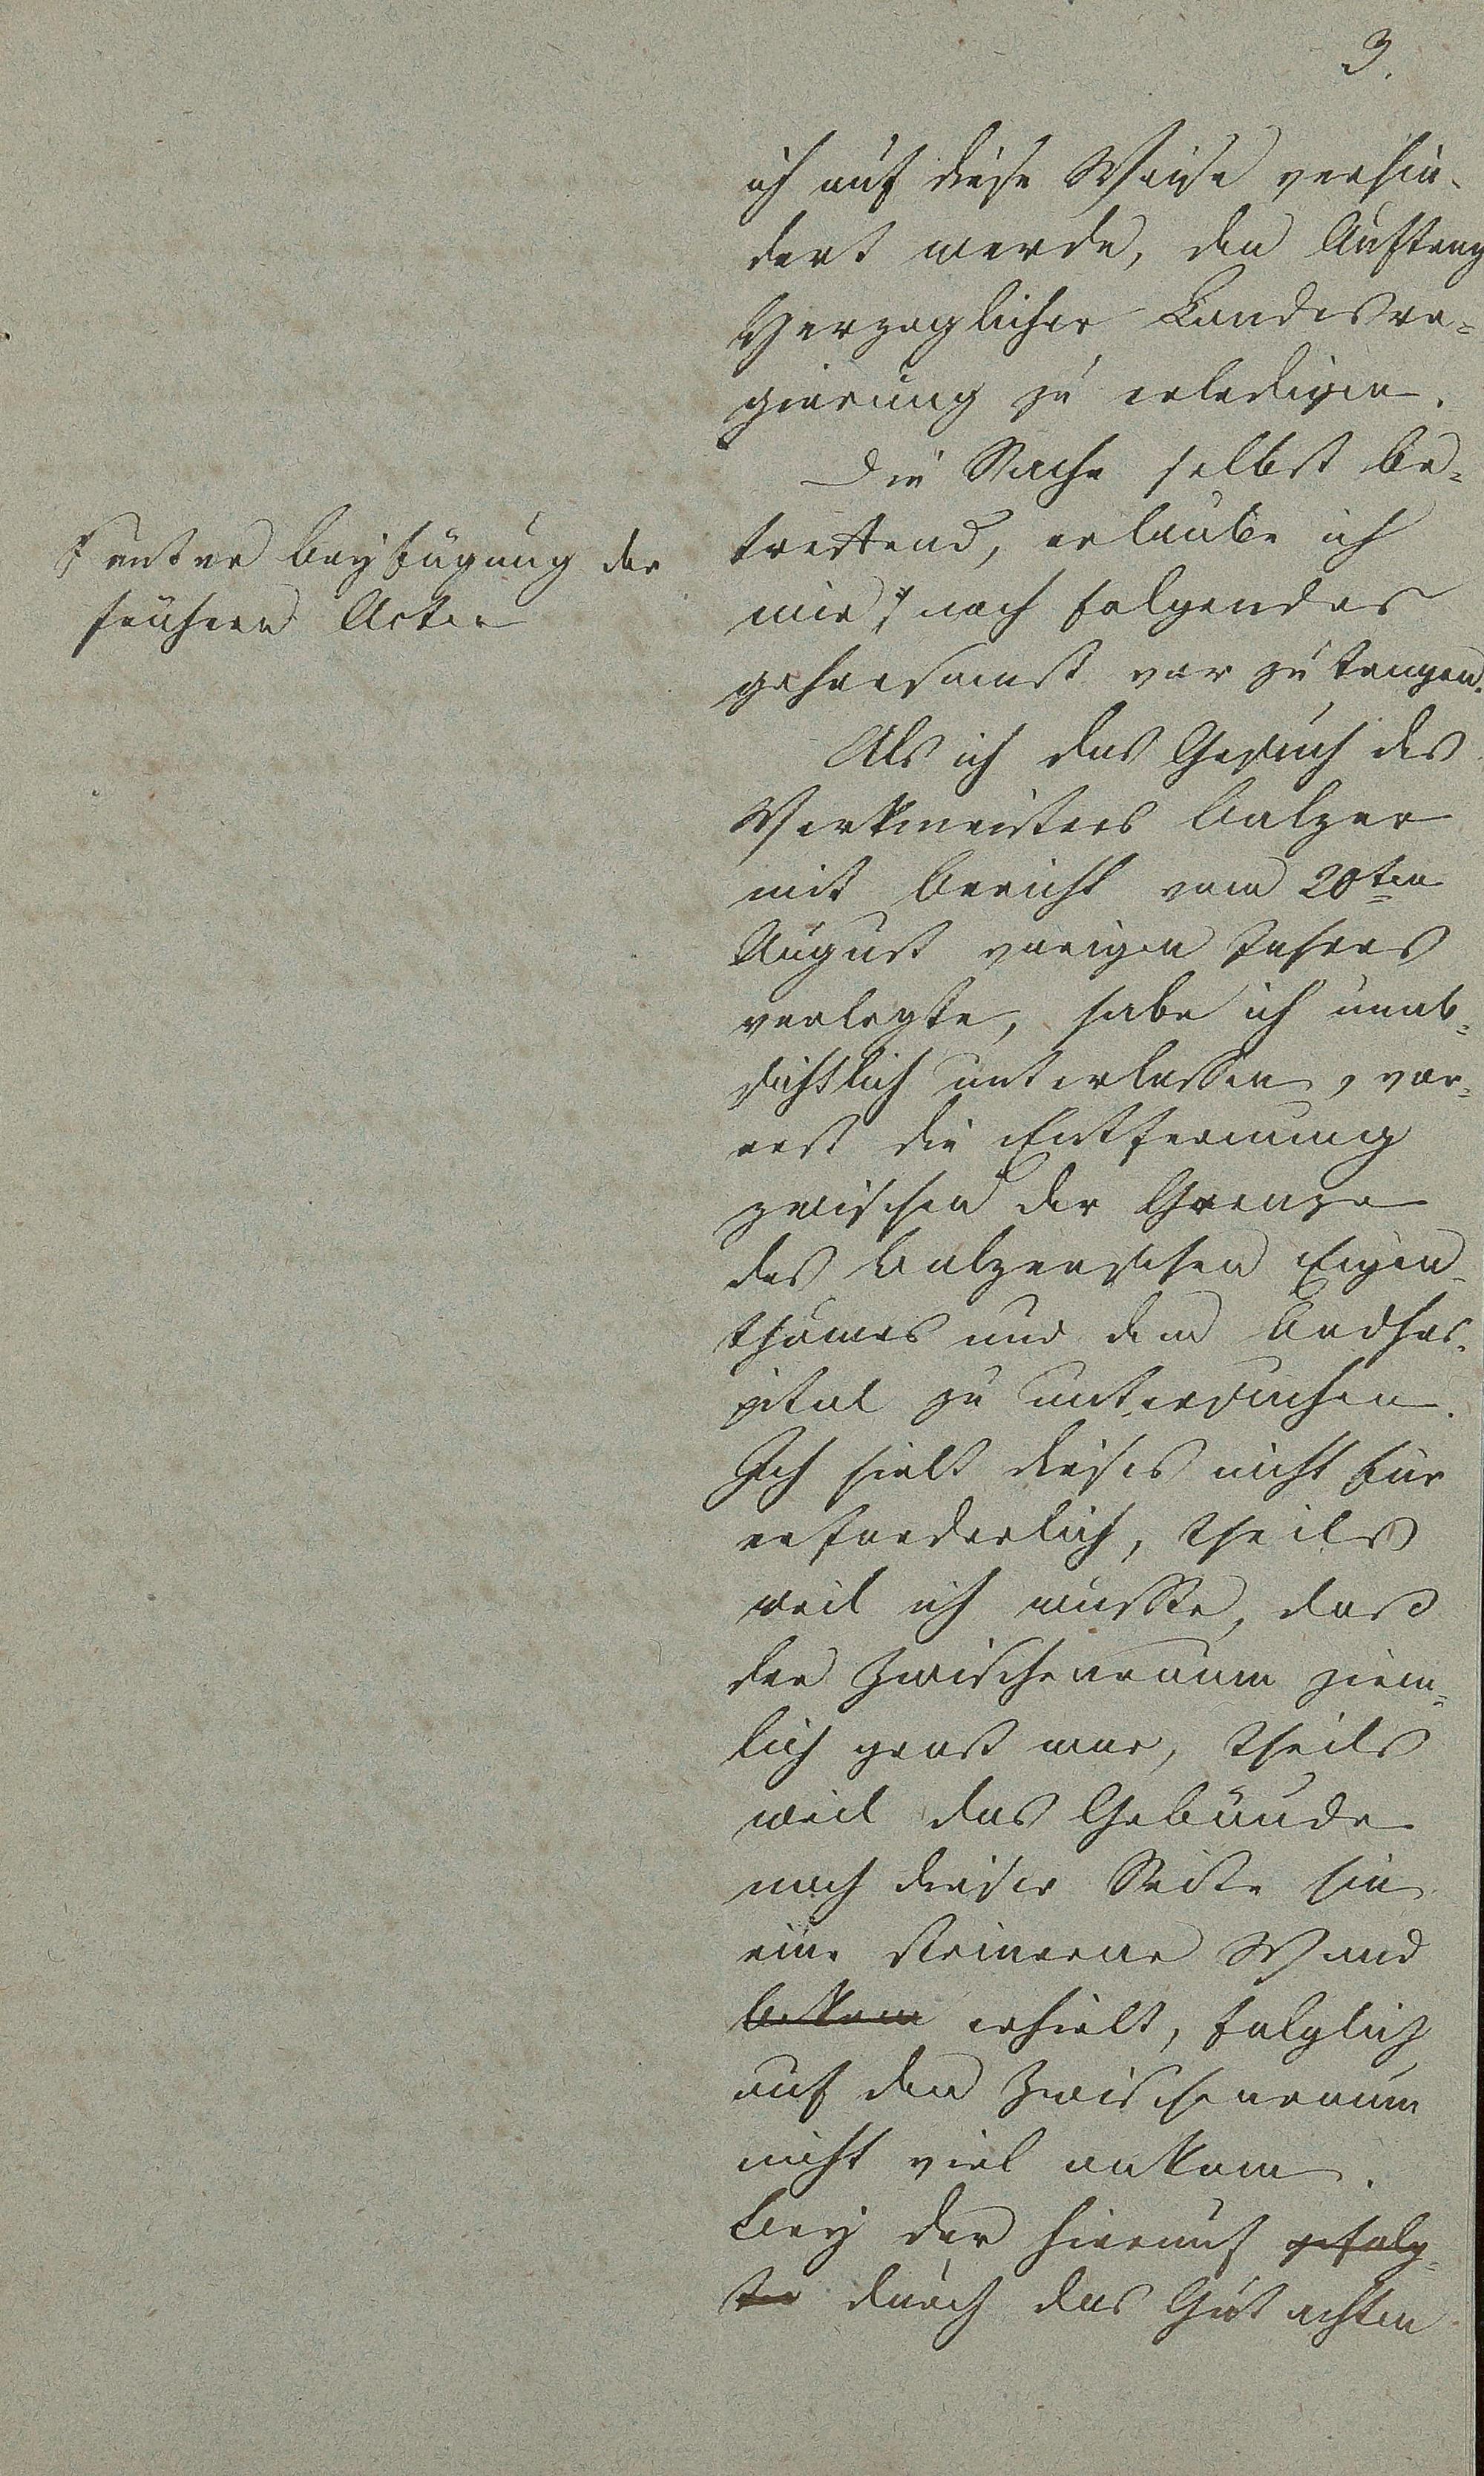 3.
ich auf diese Weise verhin-
dert werde, den Auftrag
Herzoglicher Landesre-
gierung zu erledigen.
Die Sache selbst be-
treffend, erlaube ich
mir noch folgendes
gehorsamst vor zu tragen.
unter Beyfügung der
frühern Acten
Als ich das Gesuch des
Werkmeisters Balzer
mit Bericht vom 20ten
August vorigen Jahres
vorlegte, habe ich unab-
sichtlich unterlassen, vor-
erst die Entfernung
zwischen der Grenze
des Balzerschen Eigen-
thumes und dem Badhos-
pital zu untersuchen.
Ich hielt dieses nicht für
erforderlich, theils
weil ich wußte, daß
der Zwischenraum ziem-
lich groß war, theils
weil das Gebäude
nach dieser Seite hin
eine steinerne Wand
bekam erhielt, folglich
auf den Zwischenraum
nicht viel ankam.
Bey der hierauf erfolg-
ten durch das Gutachten